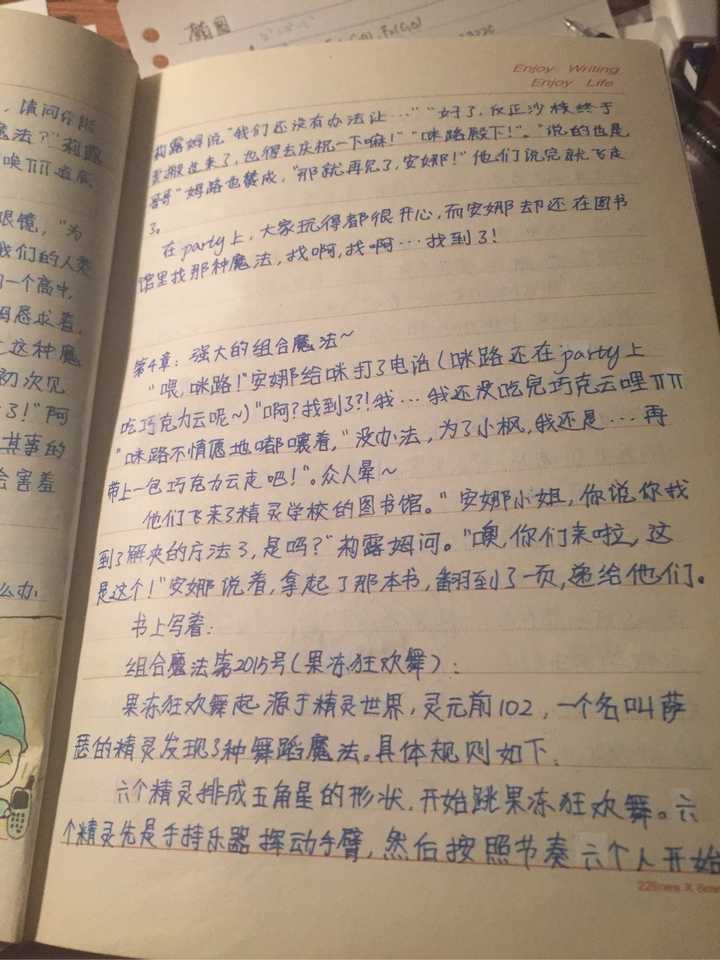 颜图
Enjoy Writing
Enjoy Life
莉露姆说“我们还没有办法让…”“好了，反正沙枝终于
搬过来了，也得去庆祝一下嘛！”“咪路殿下！”。“说的也是
哥哥”姆路也赞成，“那就再见了，安娜！”他们说完就飞走
了。
在party上，大家玩得都很开心，而安娜却还在图书
馆里找那种魔法，找啊，找啊…找到了！
第4章：强大的组合魔法~
“喂，咪路！”安娜给咪打了电话（咪路还在party上
吃巧克力云呢~）“啊？找到了？！我…我还没吃完巧克云哩TTT
“咪路不情愿地嘟嚷着，“没办法，为了小枫，我还是…再
带上一包巧克力云走吧！”。众人晕~
他们飞来了精灵学校的图书馆。“安娜小姐，你说你找
到了解决的方法了，是吗？”莉露姆问。“噢，你们来啦，这
是这个！”安娜说着，拿起了那本书，翻到了一页，递给他们。
书上写着：
组合魔法第2015号（果冻狂欢舞）：
果冻狂欢舞起源于精灵世界，灵元前102，一个名叫萨
瑟的精灵发现了种舞蹈魔法。具体规则如下：
六个精灵排成五角星的形状，开始跳果冻狂欢舞。六
个精灵先是手持乐器挥动手臂，然后按照节奏六个人开始
，请问你能
魔法？”莉露
唤TTT道底
眼镜，“为
我们的人类
的一个高中，
姆恳求着，
这种魔
初次见
了！”阿
其事的
会害羞
么办